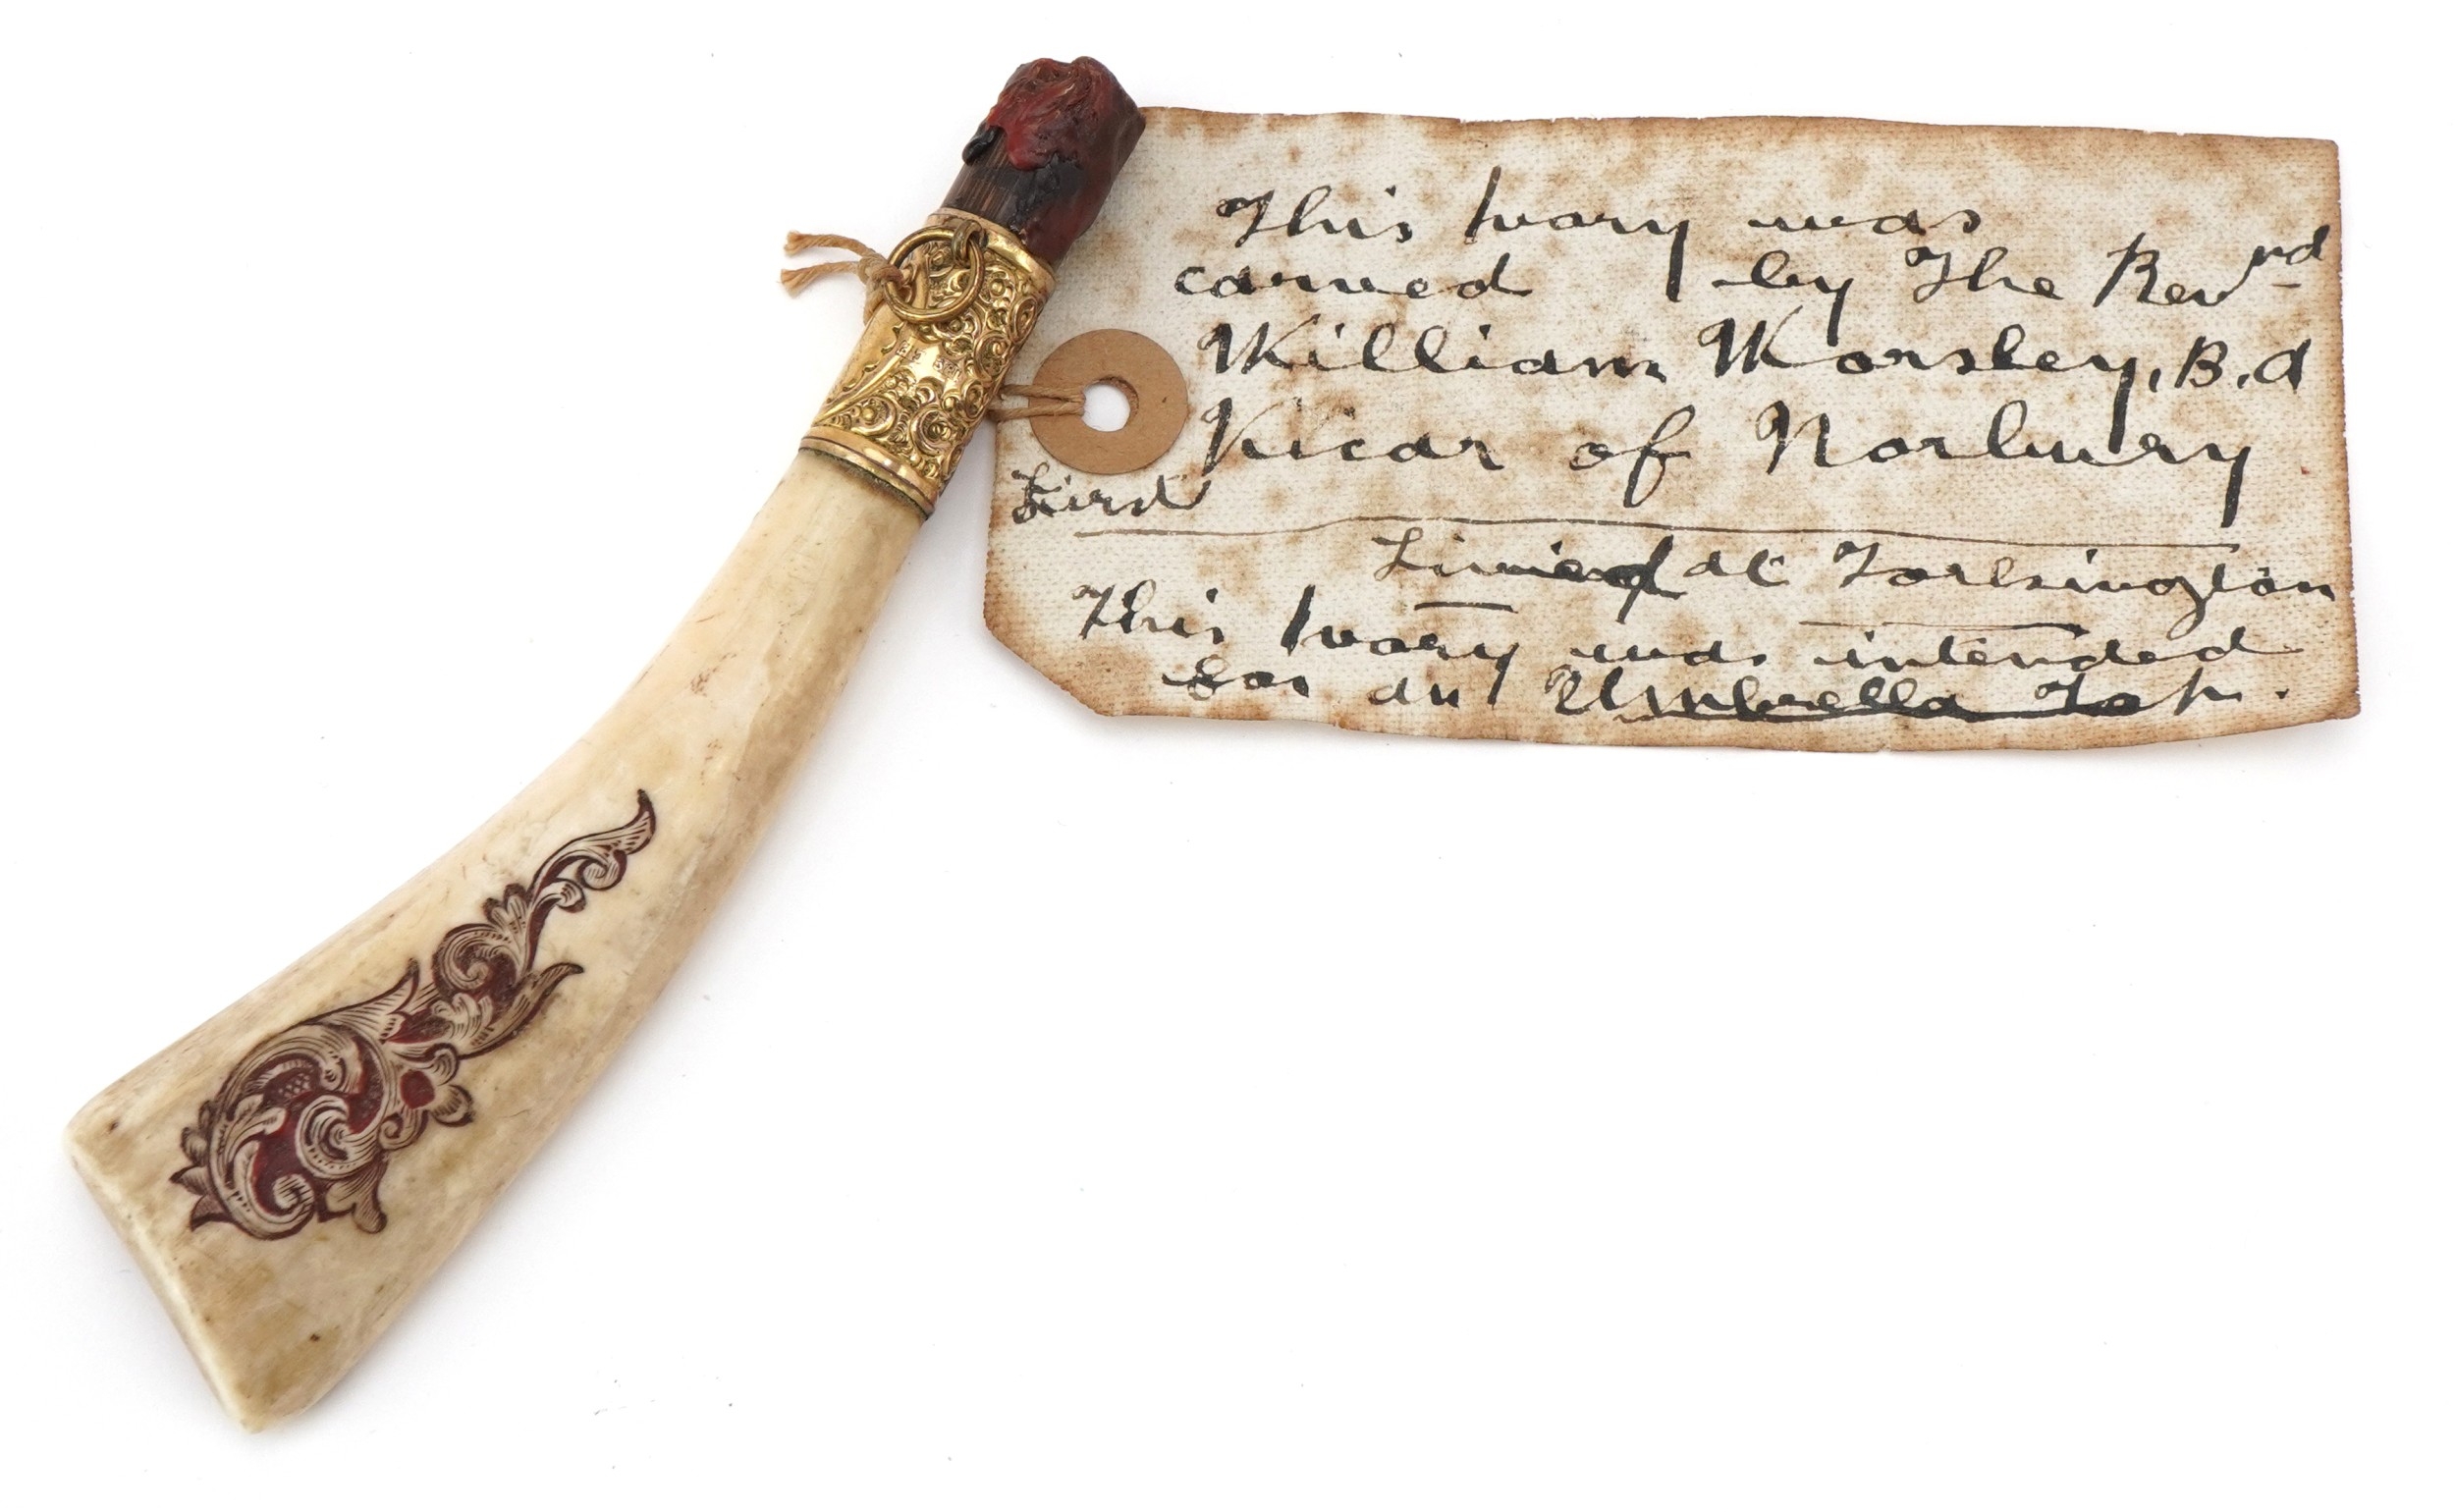 This Ivory was
carved by The Revrd
William Worsley, B.d
Vicar of Norbury
First
Lived at Torkington
This Ivory was intended
for an Umbrella Top.